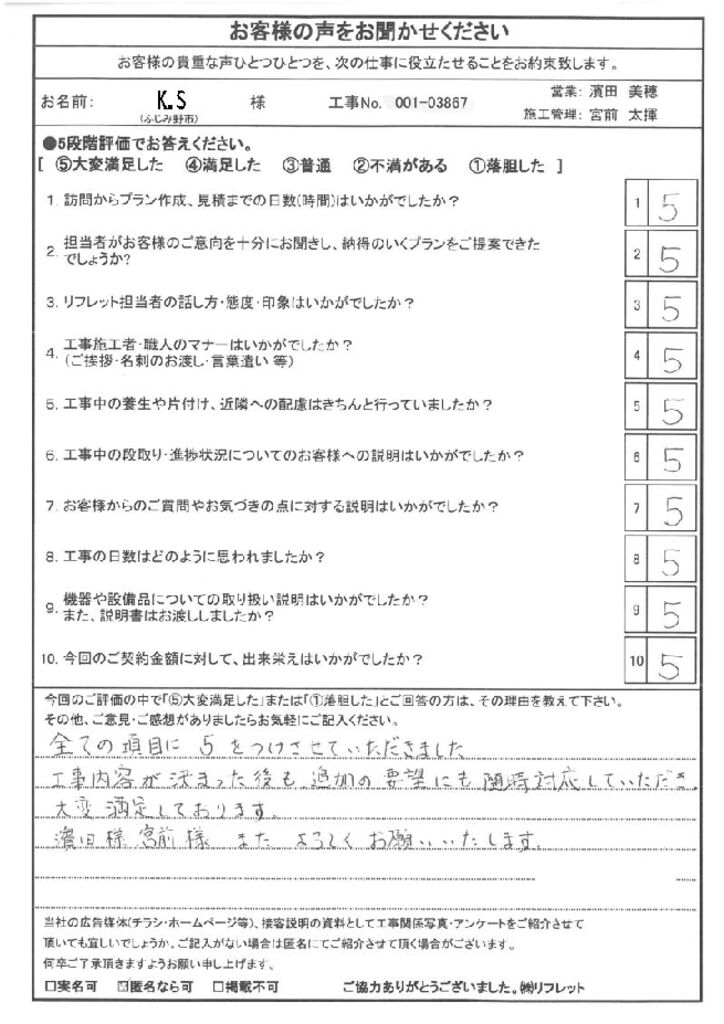 お客様の声をお聞かせください
お客様の貴重な声ひとつひとつを、次の仕事に役立たせることをお約束致します。
お名前: K.S 様 工事No. 001-03867 営業: 濱田 美穂
(ふじみ野市) 施工管理: 宮前 太揮
●5段階評価でお答えください。
[ ⑤大変満足した ④満足した ③普通 ②不満がある ①落胆した ]
1. 訪問からプラン作成、見積までの日数(時間)はいかがでしたか？ 1 5
2. 担当者がお客様のご意向を十分にお聞きし、納得のいくプランをご提案できた
でしょうか? 2 5
3. リフレット担当者の話し方・態度・印象はいかがでしたか？ 3 5
4. 工事施工者・職人のマナーはいかがでしたか？
(ご挨拶・名刺のお渡し・言葉遣い 等) 4 5
5. 工事中の養生や片付け、近隣への配慮はきちんと行っていましたか？ 5 5
6. 工事中の段取り・進捗状況についてのお客様への説明はいかがでしたか？ 6 5
7. お客様からのご質問やお気づきの点に対する説明はいかがでしたか？ 7 5
8. 工事の日数はどのように思われましたか？ 8 5
9. 機器や設備品についての取り扱い説明はいかがでしたか？
また、説明書はお渡ししましたか？ 9 5
10. 今回のご契約金額に対して、出来栄えはいかがでしたか？ 10 5
今回のご評価の中で「⑤大変満足した」または「①落胆した」とご回答の方は、その理由を教えて下さい。
その他、ご意見・ご感想がありましたらお気軽にご記入ください。
全ての項目に 5 をつけさせていただきました
工事内容が決まった後も、追加の要望にも随時対応していただき、
大変満足しております。
濱田様 宮前様 また よろしく お願いいたします。
当社の広告媒体(チラシ・ホームページ等)、接客説明の資料として工事関係写真・アンケートをご紹介させて
頂いても宜しいでしょうか。ご記入がない場合は匿名にてご紹介させて頂く場合がございます。
何卒ご了承頂きますようお願い申し上げます。
□実名可 ☑匿名なら可 □掲載不可 ご協力ありがとうございました。㈱リフレット